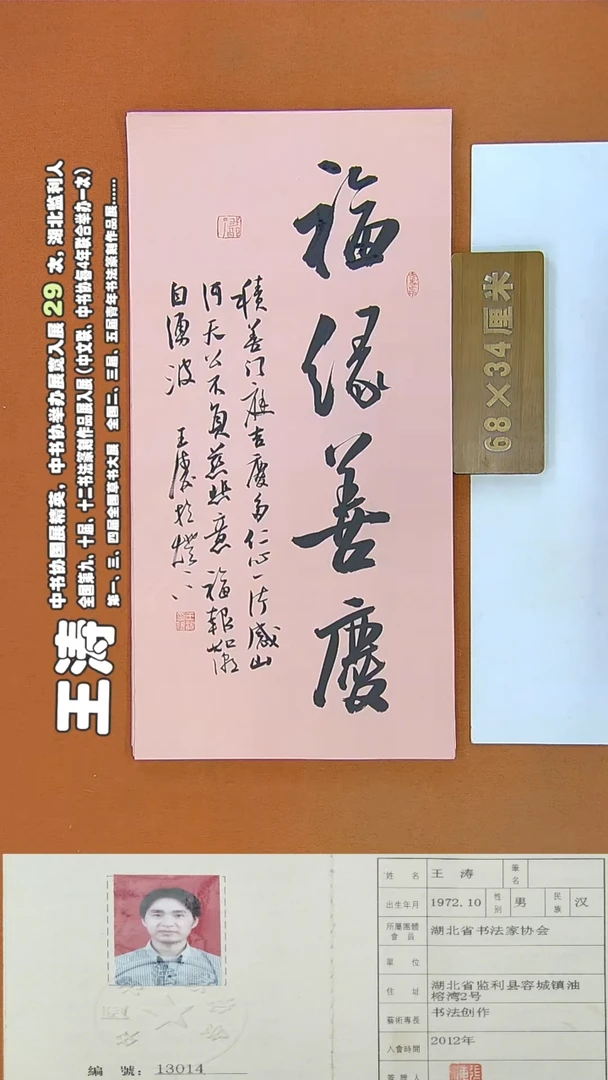 福缘善慶
積善门庭吉慶多仁心一片感山
河天公不負慈悲意福報如潮
自湧波 王濤於燈下
68×34厘米
王涛
中书协国展精英，中书协举办展赛入展 29 次，湖北监利人
全国第九、十届、十二书法篆刻作品展入展（中文奖、中书协每4年联合举办一次）
第一、三、四届全国 大展 全国二、三届、五届青年书法篆刻作品展......
編 號：13014
姓 名 王 涛 筆名
出生年月 1972.10 性別 男 民族 汉
所屬團體會員 湖北省书法家协会
單 位
住 址 湖北省监利县容城镇油
榕湾2号
藝術專長 书法创作
入會時間 2012年
簽證人